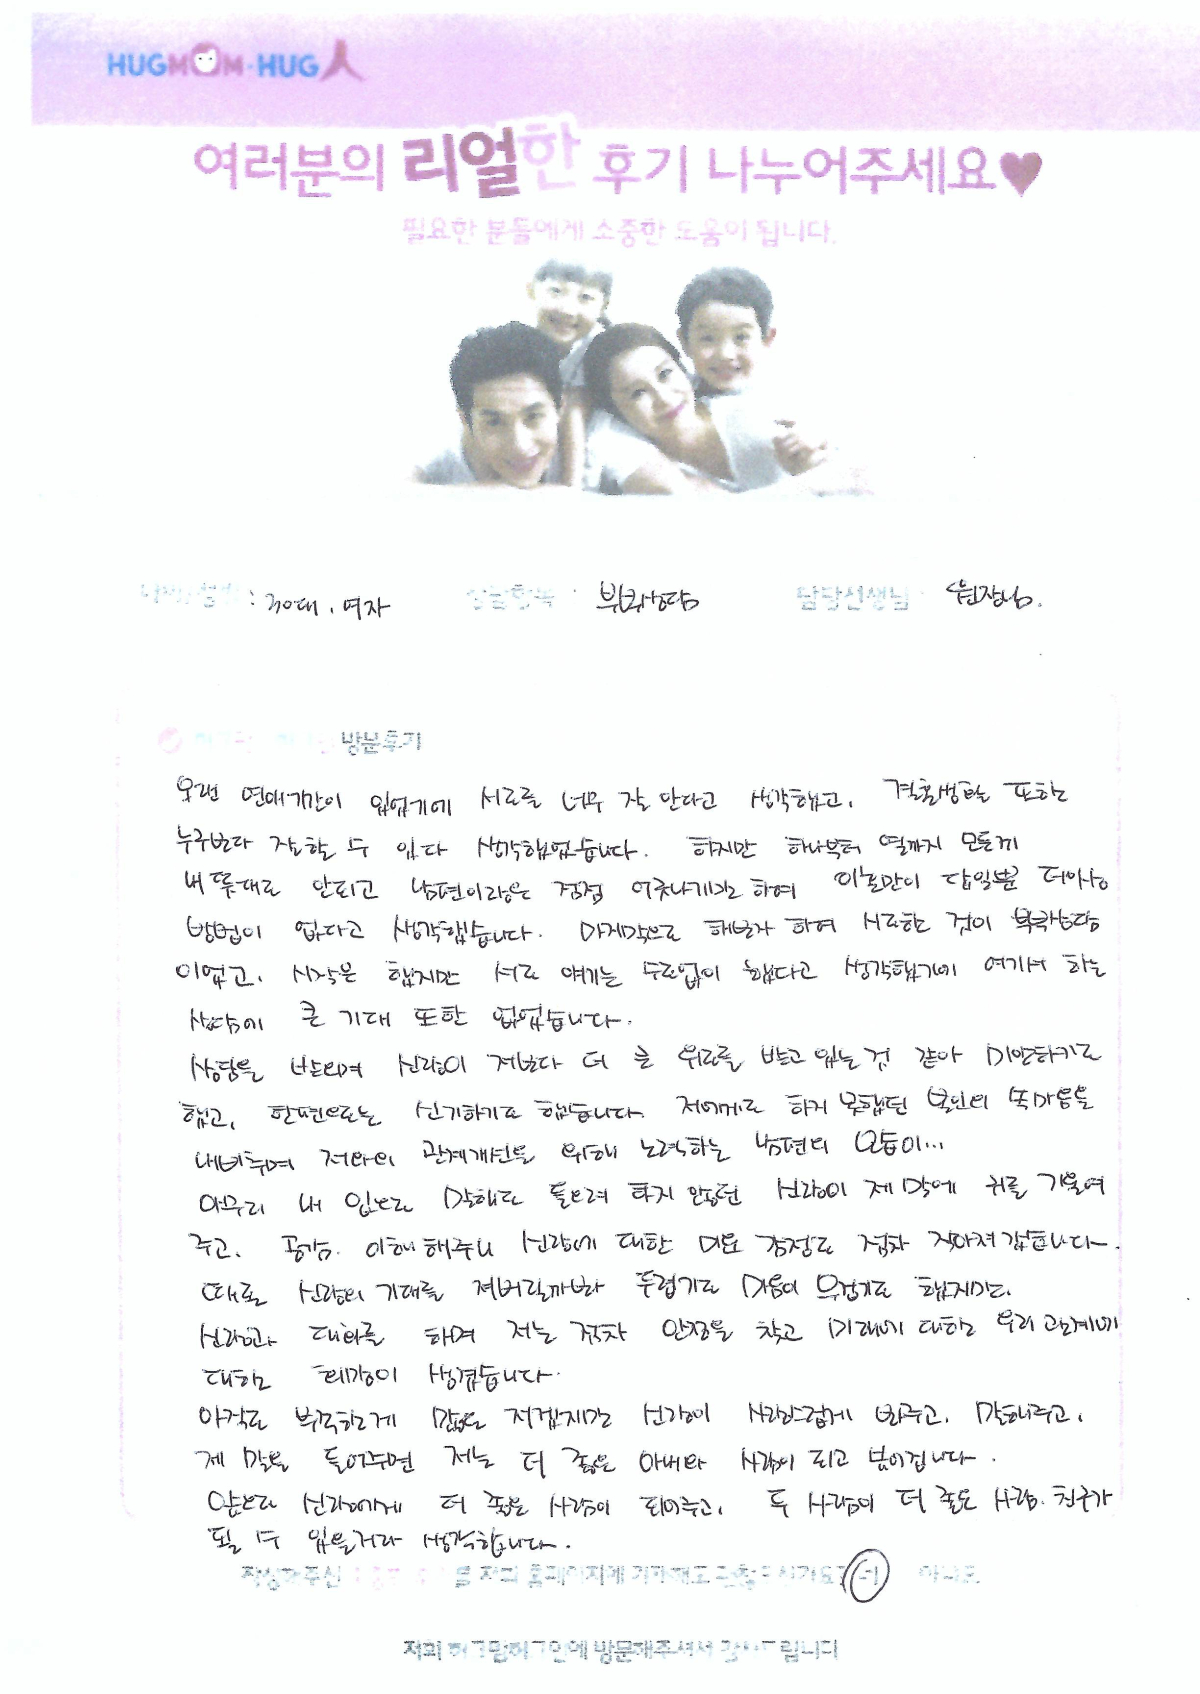 HUGMOM·HUG人
여러분의 리얼한 후기 나누어주세요♥
필요한 분들에게 소중한 도움이 됩니다.
: 30대, 여자 상담항목 : 부부상담 담당선생님 : 원장님.
방문후기
오랜 연애기간이 있었기에 서로를 너무 잘 안다고 생각했고, 결혼생활 또한
누구보다 잘할 수 있다 생각했었습니다. 하지만 하나부터 열까지 모든게
내 뜻대로 안되고 남편이랑은 점점 어긋나기만 하여 이혼만이 답일뿐 더이상
방법이 없다고 생각했습니다. 마지막으로 해보자 하여 시작한 것이 부부상담
이었고, 시작은 했지만 서로 얘기는 수도없이 했다고 생각했기에 여기서 하는
상담에 큰 기대 또한 없었습니다.
상담을 받으며 신랑이 저보다 더 큰 위로를 받고 있는 것 같아 미안하기도
했고, 한편으로는 신기하기도 했습니다. 저에게도 하지 못했던 본인의 속마음을
내비추며 저와의 관계개선을 위해 노력하는 남편의 모습이...
아무리 내 입으로 말해도 들으려 하지 않았던 신랑이 제 말에 귀를 기울여
주고, 공감. 이해해주니 신랑에 대한 미운 감정도 점차 작아져갔습니다.
때로 신랑의 기대를 져버릴까봐 두렵기도 마음이 무겁기도 했지만,
신랑과 대화를 하며 저는 점차 안정을 찾고 미래에 대한 우리 관계에
대한 희망이 생겼습니다.
아직도 부족한게 많은 저겠지만 신랑이 사랑스럽게 봐주고, 말해주고,
제 말을 들어주면 저는 더 좋은 아내와 사람이 되고 싶어집니다.
앞으로 신랑에게 더 좋은 사람이 되어주고, 두 사람이 더 좋은 사람, 친구가
될 수 있을거라 생각합니다.
작성해주신 를 저희 홈페이지에 기재해도 괜찮으신가요? 네 아니요
저희 허그맘허그인에 방문해주셔서 감사드립니다